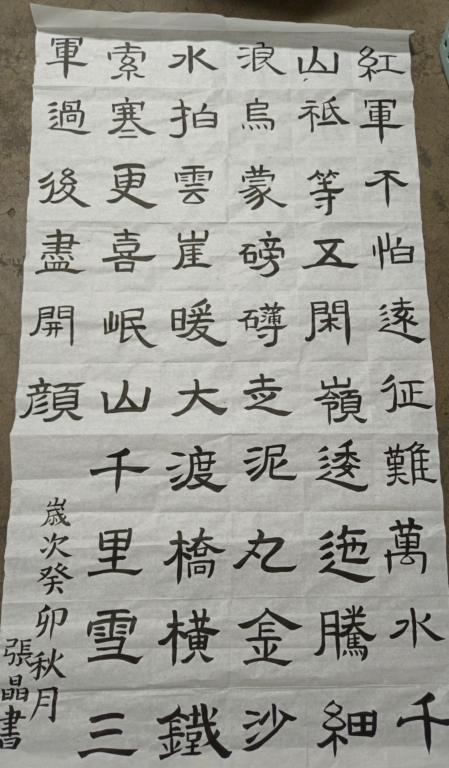 紅軍不怕遠征難萬水千
山祗等五閑嶺逶迤騰細
浪烏蒙磅礴走泥丸金沙
水拍雲崖暖大渡橋橫鐵
索寒更喜岷山千里雪三
軍過後盡開顔
歲次癸卯秋月
張晶書